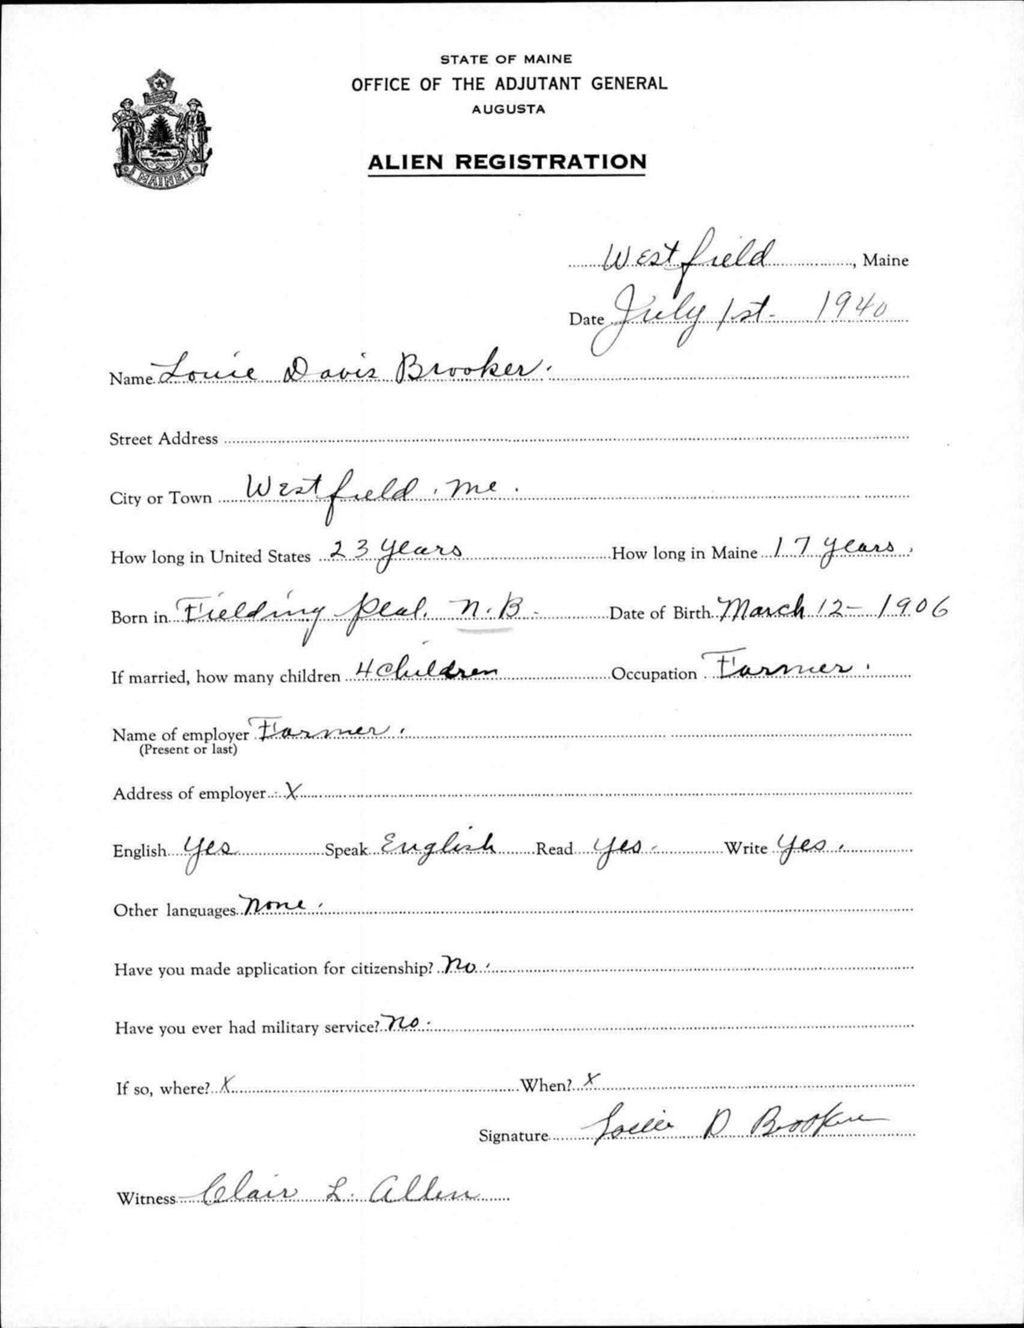 STATE OF MAINE
OFFICE OF THE ADJUTANT GENERAL
AUGUSTA
ALIEN REGISTRATION
MAINE
Westfield, Maine
Date July 1st - 1940
Name Louie Davis Brooker.
Street Address
City or Town Westfield, Me.
How long in United States 23 years How long in Maine 17 years,
Born in Fielding Peal, N.B. Date of Birth March 12 - 1906
If married, how many children 4 Children Occupation Farmer.
Name of employer Farmer.
(Present or last)
Address of employer X
English Yes Speak English Read Yes. Write Yes.
Other languages None.
Have you made application for citizenship? No.
Have you ever had military service? No.
If so, where? X When? X
Signature Louie D Brooker
Witness Clair L. Allen